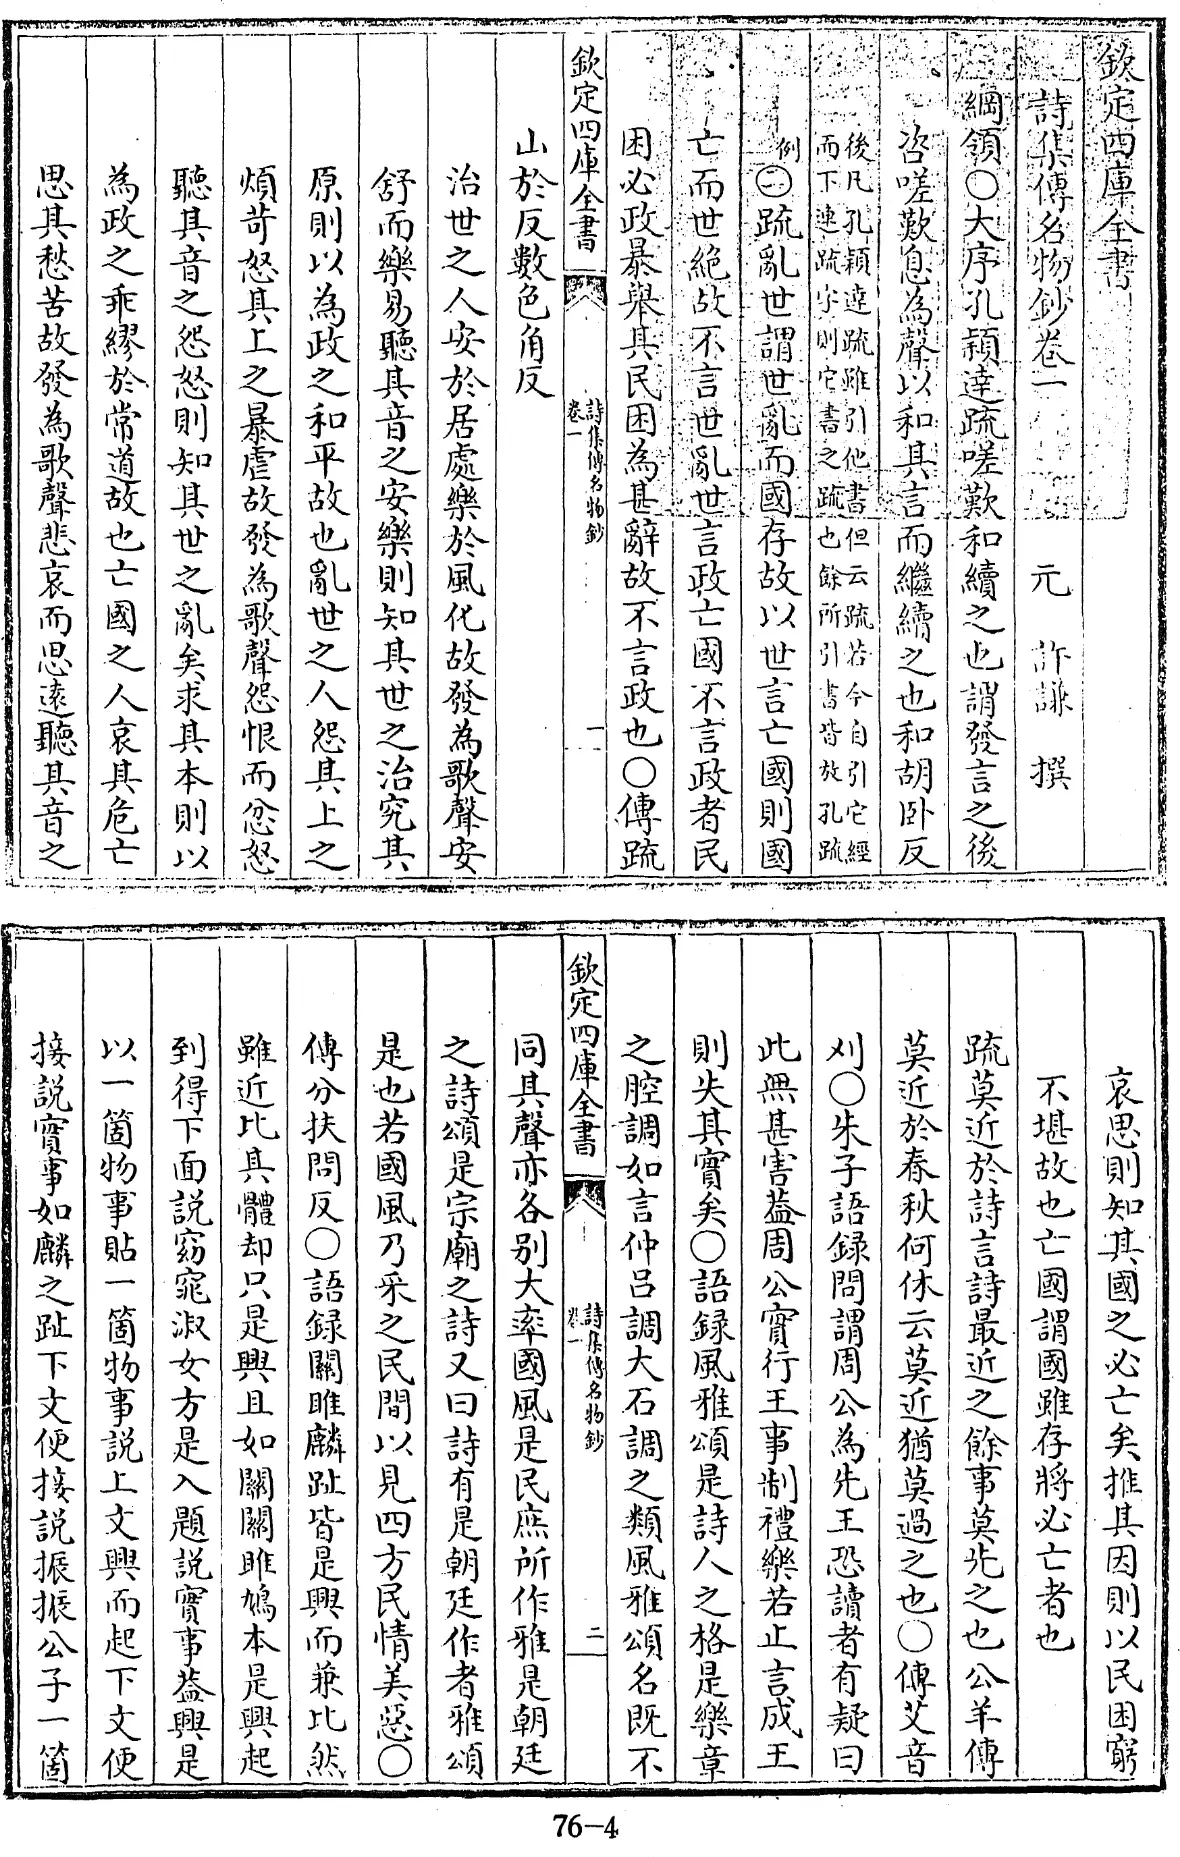 欽定四庫全書
詩集傳名物鈔卷一　元　許謙　撰
綱領〇大序孔穎達疏嗟歎和續之也謂發言之後
咨嗟歎息為聲以和其言而繼續之也和胡卧反
後凡孔穎達疏雖引他書但云疏若今自引它經
而下連疏字則它書之疏也餘所引書皆放孔疏
例
〇疏亂世謂世亂而國存故以世言亡國則國
亡而世絶故不言世亂世言政亡國不言政者民
困必政暴舉其民困為甚辭故不言政也〇傳疏
欽定四庫全書
詩集傳名物鈔
卷一
一
山於反數色角反
治世之人安於居處樂於風化故發為歌聲安
舒而樂易聽其音之安樂則知其世之治究其
原則以為政之和平故也亂世之人怨其上之
煩苛怒其上之暴虐故發為歌聲怨恨而忿怒
聽其音之怨怒則知其世之亂矣求其本則以
為政之乖繆於常道故也亡國之人哀其危亡
思其愁苦故發為歌聲悲哀而思遠聽其音之
哀思則知其國之必亡矣推其因則以民困窮
不堪故也亡國謂國雖存將必亡者也
疏莫近於詩言詩最近之餘事莫先之也公羊傳
莫近於春秋何休云莫近猶莫過之也〇傳艾音
刈〇朱子語録問謂周公為先王恐讀者有疑曰
此無甚害葢周公實行王事制禮樂若止言成王
則失其實矣〇語録風雅頌是詩人之格是樂章
之腔調如言仲吕調大石調之類風雅頌名既不
欽定四庫全書
詩集傳名物鈔
卷一
二
同其聲亦各别大率國風是民庶所作雅是朝廷
之詩頌是宗廟之詩又曰詩有是朝廷作者雅頌
是也若國風乃采之民間以見四方民情美惡〇
傳分扶問反〇語録關雎麟趾皆是興而兼比然
雖近比其體却只是興且如關關雎鳩本是興起
到得下面說窈窕淑女方是入題說實事葢興是
以一箇物事貼一箇物事說上文興而起下文便
接說實事如麟之趾下文便接說振振公子一箇
76-4